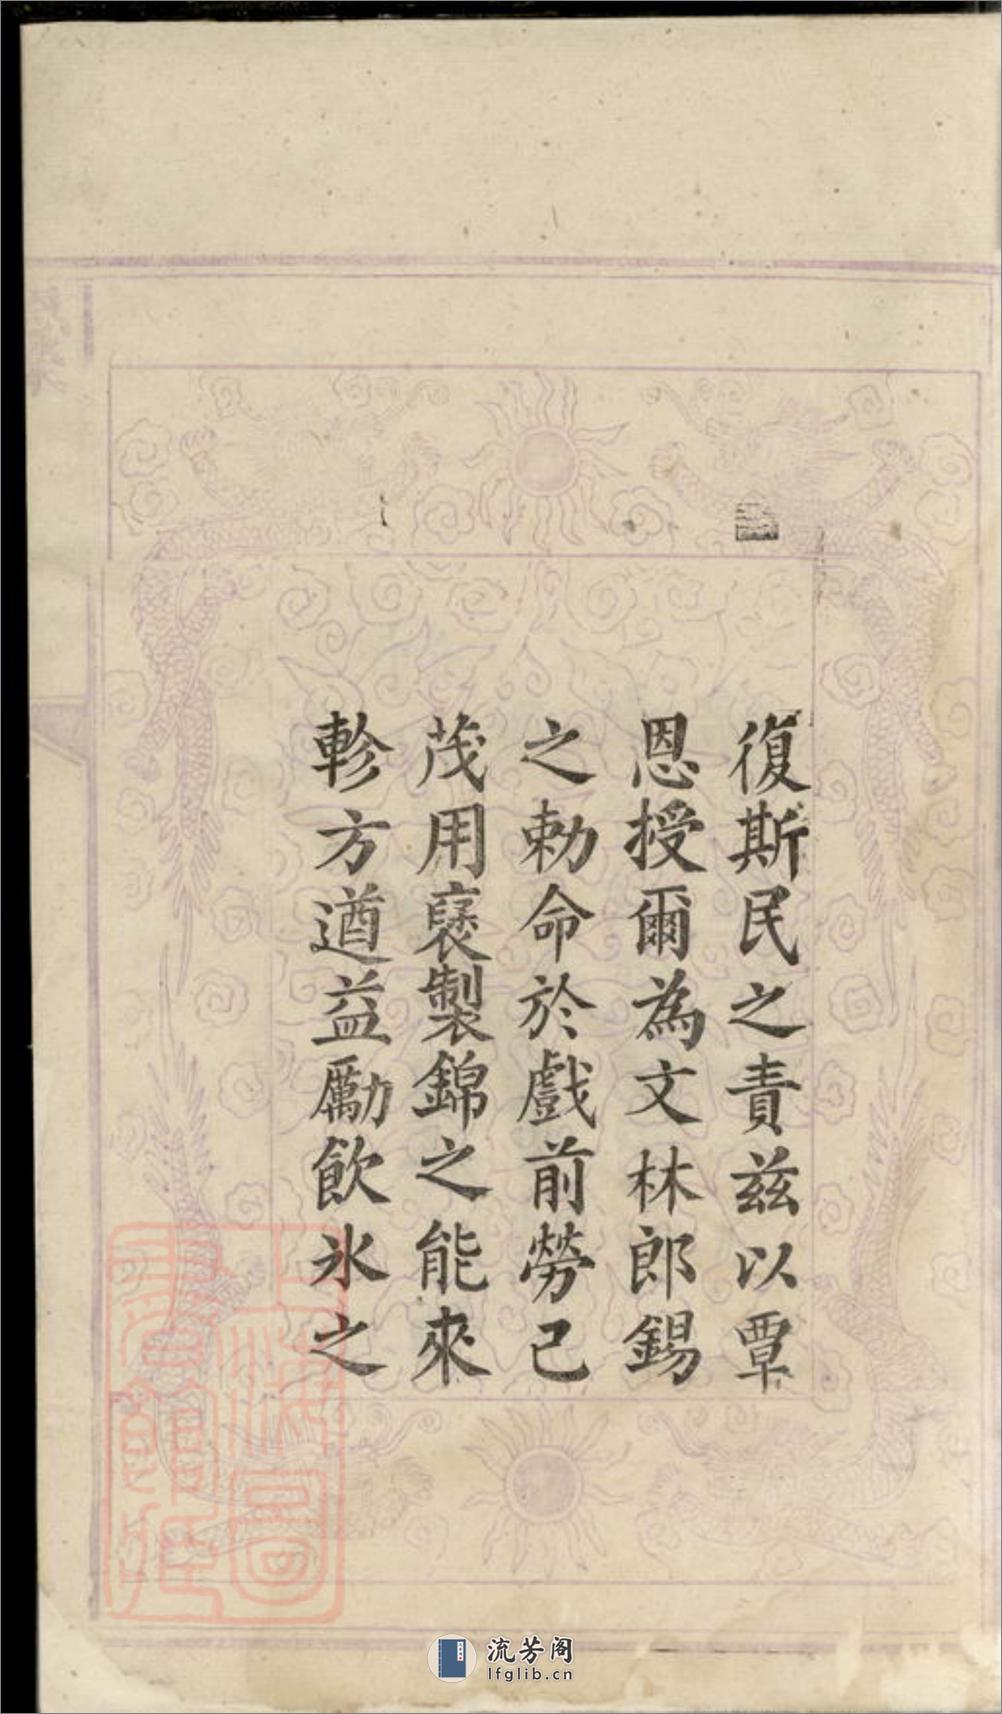 復斯民之責茲以覃
恩授爾為文林郎錫
之勅命於戲前勞已
茂用褎製錦之能來
軫方遒益勵飲氷之
上海圖書館藏
流芳阁
lfglib.cn